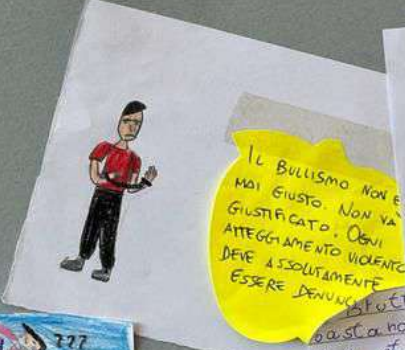 IL BULLISMO NON È
MAI GIUSTO. NON VA
GIUSTIFICATO. OGNI
ATTEGGIAMENTO VIOLENTO
DEVE ASSOLUTAMENTE
ESSERE
???